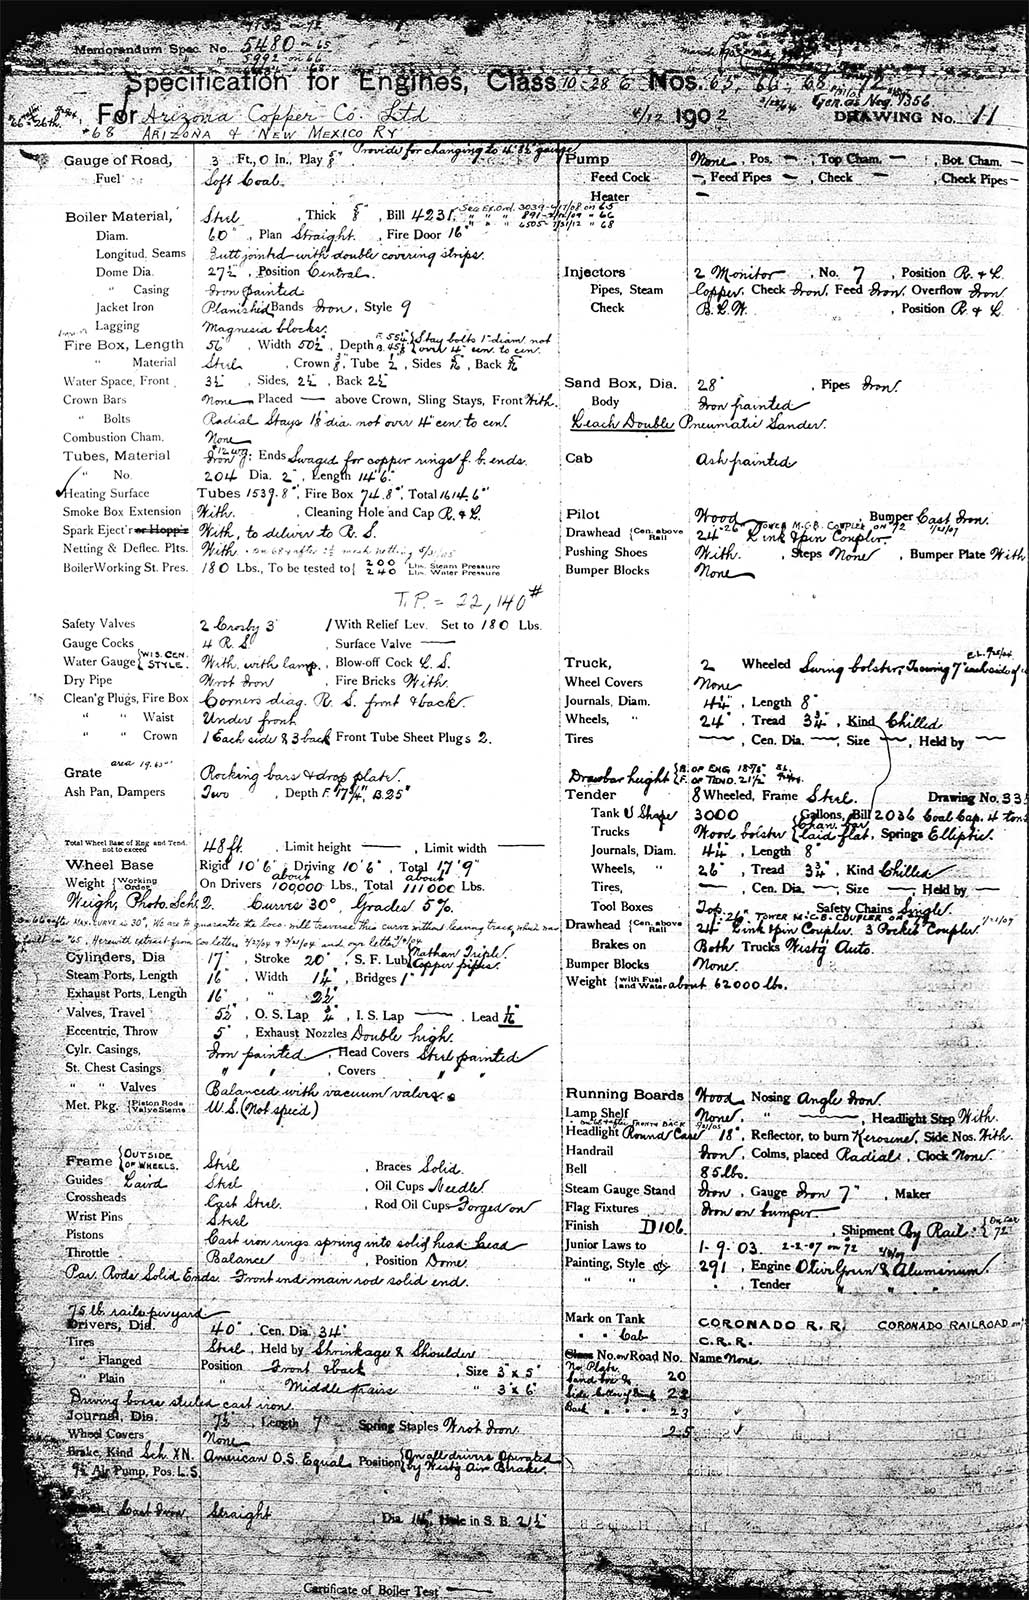 Memorandum Spec. No. 5480 on 65
5992 on 66
Specification for Engines, Class 10-28 E Nos. 65, 66, 68
For Arizona Copper Co. Ltd 4/12 1902 DRAWING No. 11
#68 ARIZONA & NEW MEXICO RY
Provide for changing to 4' 8½" gauge
Gauge of Road, 3 Ft, 0 In., Play
Fuel Soft Coal.
Boiler Material, Steel, Thick ⅝", Bill 4231.
Diam. 60", Plan Straight. Fire Door 16"
Longitud. Seams Butt jointed with double covering strips.
Dome Dia. 27½", Position Central.
" Casing Iron painted
Jacket Iron Planished Bands Iron, Style 9
Lagging Magnesia blocks.
Fire Box, Length 56", Width 50½", Depth F. 55¼" B. 45⅝" Stay bolts 1" diam. not over 4" cen. to cen.
" Material Steel, Crown ⅜", Tube ½", Sides 5/16, Back 5/16
Water Space, Front 3½, Sides, 2½, Back 2½"
Crown Bars None Placed — above Crown, Sling Stays, Front With.
" Bolts Radial Stays 1⅛ dia. not over 4" cen to cen.
Combustion Cham. None
Tubes, Material Iron #12 W.G. Ends Swaged for copper rings f. b. ends.
" No. 204 Dia. 2", Length 14' 6"
Heating Surface Tubes 1539.8", Fire Box 74.8", Total 1614.6"
Smoke Box Extension With. , Cleaning Hole and Cap R. & L.
Spark Eject'r or Hopp'r With, to deliver to R. S.
Netting & Deflec. Plts. With.
Boiler Working St. Pres. 180 Lbs., To be tested to 200 Lbs. Steam Pressure 240 Lbs. Water Pressure
T.P. = 22,140#
Safety Valves 2 Crosby 3" 1 With Relief Lev. Set to 180 Lbs.
Gauge Cocks 4 R. S. , Surface Valve —
Water Gauge WIS. CEN. STYLE. With. with lamp, Blow-off Cock L. S.
Dry Pipe Wrot Iron , Fire Bricks With.
Clean'g Plugs, Fire Box Corners diag. R. S. front & back.
" " Waist Under front
" " Crown 1 Each side & 3 back Front Tube Sheet Plugs 2.
Grate area 19.65 Rocking bars & drop plate.
Ash Pan, Dampers Two , Depth F. 17¼", B. 25"
Total Wheel Base of Eng. and Tend. not to exceed 48 ft. , Limit height — , Limit width —
Wheel Base Rigid 10' 6", Driving 10' 6", Total 17' 9"
Weight Working Order On Drivers about 100,000 Lbs., Total about 111000 Lbs.
Weigh, Photo. Sch. 2. Curves 30°, Grades 5%.
MAX. CURVE is 30°, We are to guarantee the loco. will traverse this curve without leaving track, which was
built in '65. Herewith extract from cos letters
Cylinders, Dia 17", Stroke 20", S. F. Lub Nathan Triple. Copper pipes.
Steam Ports, Length 16", Width 1¼", Bridges 1"
Exhaust Ports, Length 16", " 2½"
Valves, Travel 5½", O. S. Lap ¾", I. S. Lap — . Lead 1/16"
Eccentric, Throw 5", Exhaust Nozzles Double high.
Cylr. Casings, Iron painted, Head Covers Steel painted
St. Chest Casings " " , Covers " "
" " Valves Balanced with vacuum valves.
Met. Pkg. Piston Rods Valve Stems U.S. (Not spec'd)
Frame OUTSIDE OF WHEELS. Steel , Braces Solid.
Guides Laird Steel , Oil Cups Needle
Crossheads Cast Steel. , Rod Oil Cups Forged on
Wrist Pins Steel
Pistons Cast iron rings sprung into solid head head
Throttle Balance , Position Dome.
Par. Rods Solid Ends. Front end main rod solid end.
75 lb. rails per yard
Drivers, Dia. 40", Cen. Dia. 34"
Tires Steel, Held by Shrinkage & Shoulder
" Flanged Position Front & back , Size 3" x 5"
" Plain " Middle pairs " 3" x 6"
Driving boxes steeled cast iron.
Journal, Dia. 7½, Length 7" Spring Staples Wrot Iron.
Wheel Covers None
Brake, Kind Sch. XN. American O.S. Equal Position On all drivers Operated by Westg Air Brake.
9½ Air Pump, Pos. L.S.
Cast Iron, Straight , Dia. , Hole in S. B. 21½"
Certificate of Boiler Test —
Pump None, Pos. — , Top Cham. — , Bot. Cham. —
Feed Cock — , Feed Pipes — , Check — , Check Pipes —
Heater —
Injectors 2 Monitor , No. 7 , Position R. & L.
Pipes, Steam Copper, Check Iron, Feed Iron, Overflow Iron
Check B. L. W. , Position R. & L.
Sand Box, Dia. 28" , Pipes Iron.
Body Iron painted
Leach Double Pneumatic Sander.
Cab Ash painted
Pilot Wood Bumper Cast Iron.
TOWER M.C.B. COUPLER ON 72
Drawhead Cen. above Rail 24" Link & pin Coupler.
Pushing Shoes With. , Steps None , Bumper Plate With
Bumper Blocks None
Truck, 2 Wheeled Swing bolster,
Wheel Covers None
Journals, Diam. 4¼", Length 8"
Wheels, " 24", Tread 3¾", Kind Chilled
Tires — , Cen. Dia. — , Size — , Held by —
Drawbar height B. OF ENG F. OF TEND. 21½"
Tender 8 Wheeled, Frame Steel. Drawing No. 335
Tank U Shape 3000 Gallons, Bill 2036 Coal Cap. 4 tons
Trucks Wood bolster Chan. bar laid flat, Springs Elliptic.
Journals, Diam. 4¼", Length 8"
Wheels, " 26", Tread 3¾" Kind Chilled
Tires, — , Cen. Dia. — , Size — , Held by —
Tool Boxes Top. Safety Chains Single.
TOWER M.C.B. COUPLER ON
Drawhead Cen. above Rail 24" Link & pin Coupler. 3 Pocket Coupler.
Brakes on Both Trucks Westg Auto.
Bumper Blocks None.
Weight with Fuel and Water about 62000 lbs.
Running Boards Wood, Nosing Angle Iron.
Lamp Shelf None, " — , Headlight Step With.
Headlight Round Case 18", Reflector, to burn Kerosine, Side Nos. With.
Handrail Iron, Colms, placed Radial, Clock None.
Bell 85 lbs.
Steam Gauge Stand Iron, Gauge Iron 7" , Maker
Flag Fixtures Iron on bumper
Finish D106. , Shipment By Rail.
Junior Laws to 1-9-03. 2-2-07 on 72
Painting, Style 291, Engine Olive Green & Aluminum.
" " , Tender " " "
Mark on Tank CORONADO R. R. CORONADO RAILROAD on
" " Cab C.R.R.
Class No. on Road No. Name None.
No Plate. 20
Sand box 22
Back " " " 23
25